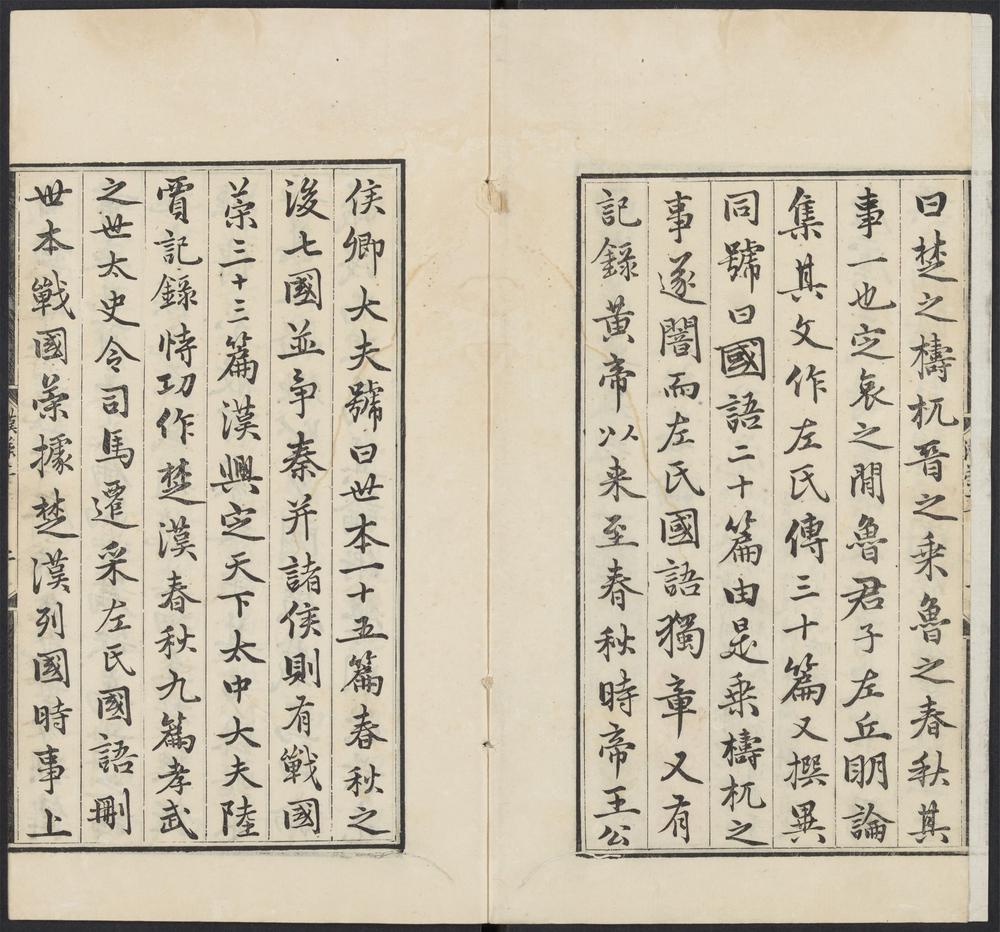 曰楚之檮杌晉之乗魯之春秋其
事一也定哀之間魯君子左丘明論
集其文作左氏傳三十篇又撰異
同號曰國語二十篇由是乗檮杌之
事遂闇而左氏國語獨章又有
記錄黃帝以来至春秋時帝王公
侯卿大夫號曰世本一十五篇春秋之
後七國並争秦并諸侯則有戰國
策三十三篇漢興定天下太中大夫陸
賈記錄時功作楚漢春秋九篇孝武
之世太史令司馬遷采左氏國語刪
世本戰國策據楚漢列國時事上